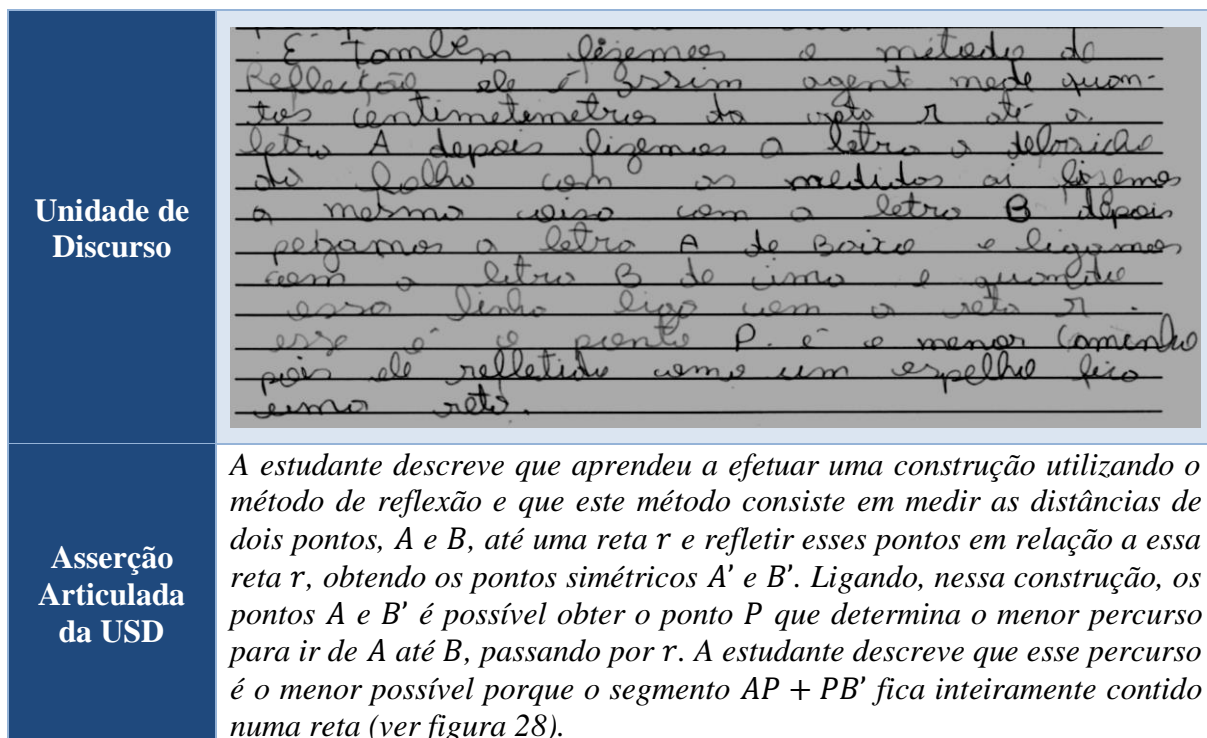 Unidade de
Discurso
E também fizemos o metodo de
Reflleteção ele é assim agent mede quan-
tos centimetemetros da reta r até a
letra A depois fizemos a letra a debaicho
da folha com as medidas ai fizemos
a mesma coisa com a letra B depois
pegamos a letra A de Baixo e ligamos
com a letra B de cima e quando
essa linha liga com a reta r.
esse é o ponto P. é o menor Caminho
pois ele refletido como um espelho fica
uma reta.
Asserção
Articulada
da USD
A estudante descreve que aprendeu a efetuar uma construção utilizando o
método de reflexão e que este método consiste em medir as distâncias de
dois pontos, A e B, até uma reta r e refletir esses pontos em relação a essa
reta r, obtendo os pontos simétricos A’ e B’. Ligando, nessa construção, os
pontos A e B’ é possível obter o ponto P que determina o menor percurso
para ir de A até B, passando por r. A estudante descreve que esse percurso
é o menor possível porque o segmento AP + PB’ fica inteiramente contido
numa reta (ver figura 28).